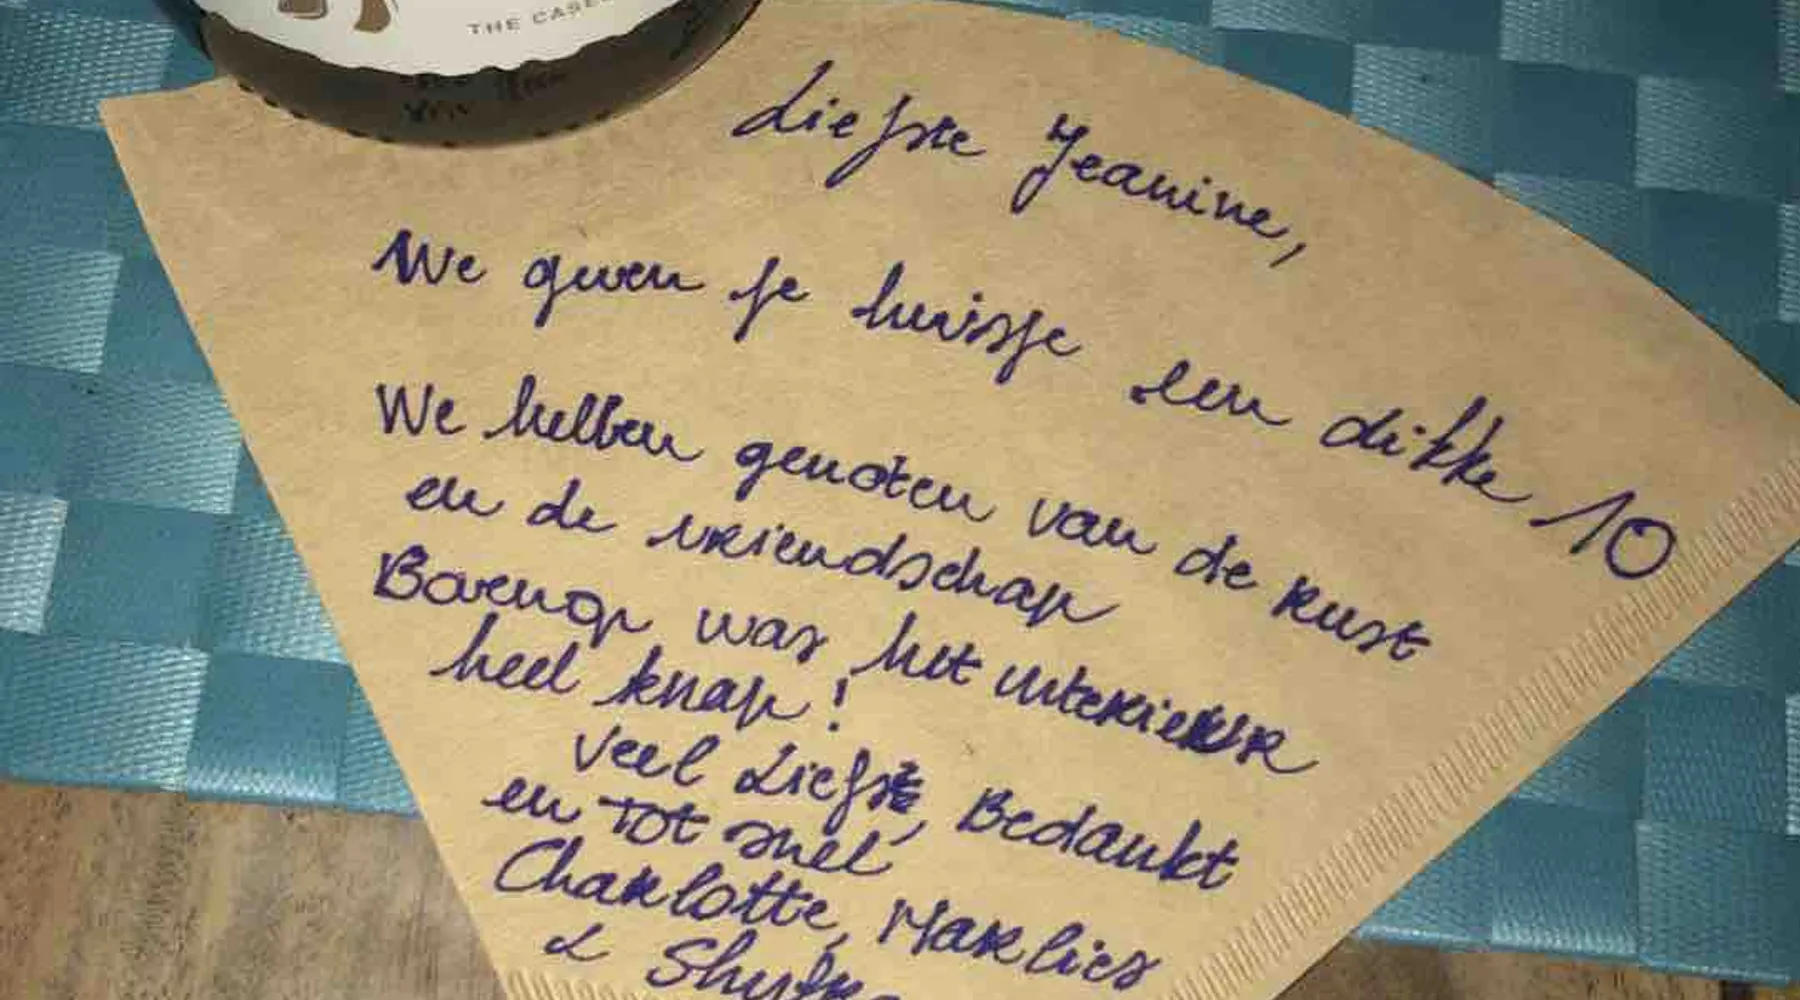 THE CASE
Liefste Jeanine,
We geven je huisje een dikke 10
We hebben genoten van de rust
en de vriendschap
Bovenop was het interieur
heel knap!
Veel Liefs, Bedankt
en Tot snel
Charlotte, Marlies
&